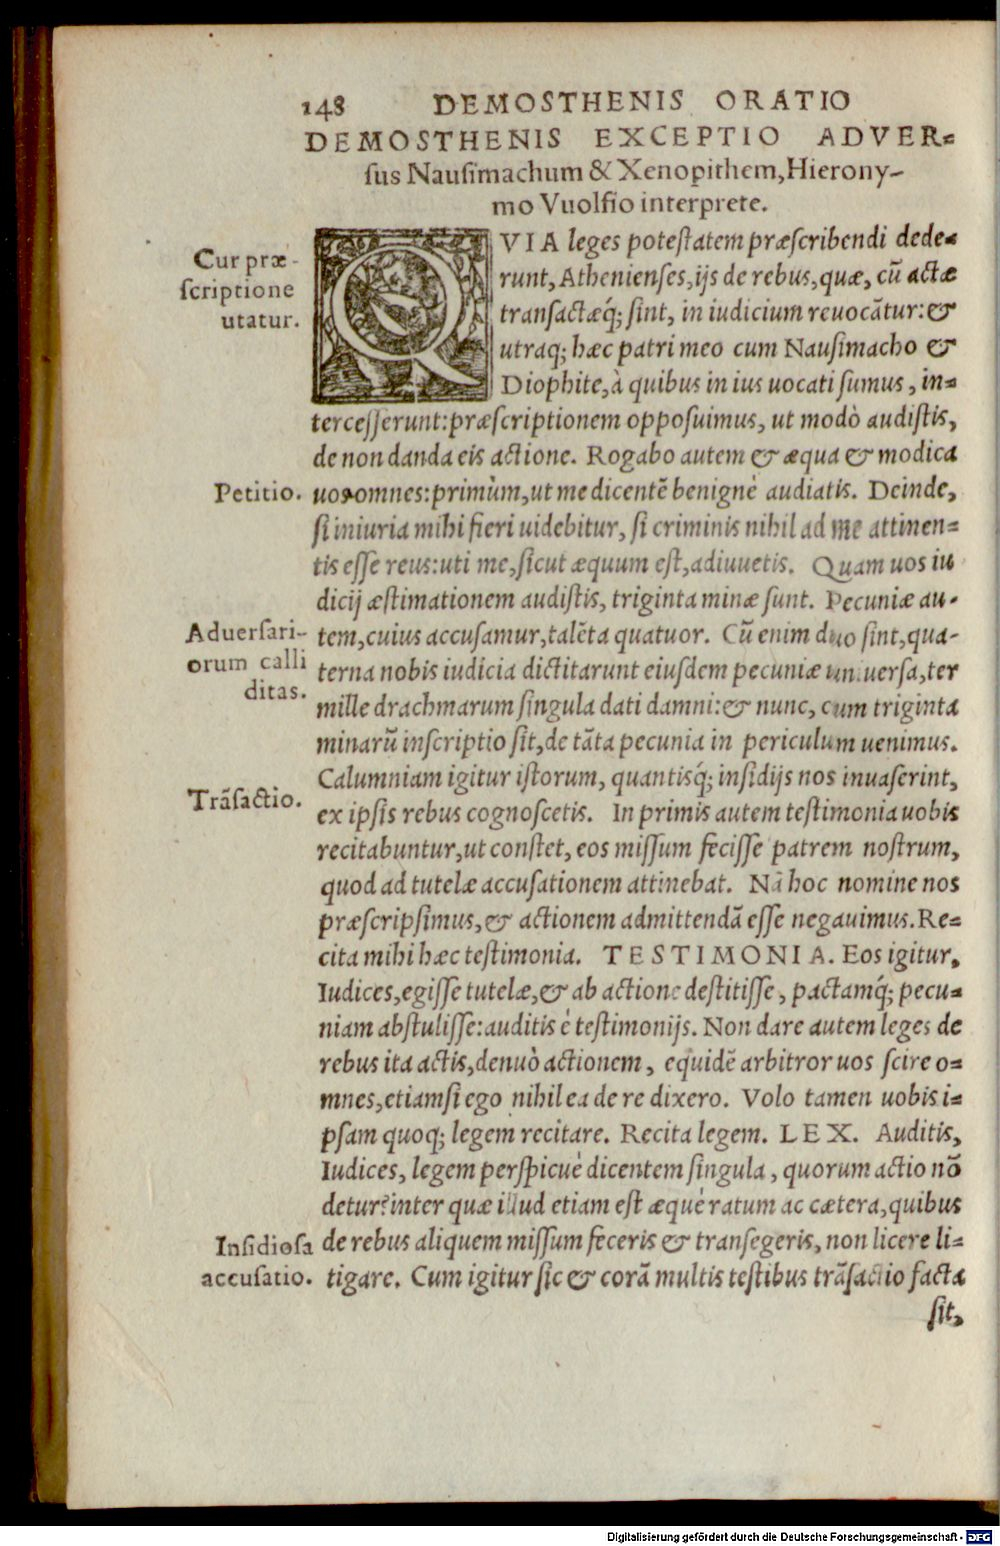 148 DEMOSTHENIS ORATIO
DEMOSTHENIS EXCEPTIO ADVER=
sus Nausimachum & Xenopithem, Hierony-
mo Vuolfio interprete.
Cur præ-
scriptione
utatur.
QVIA leges potestatem præscribendi dede=
runt, Athenienses, ijs de rebus, quæ, cũ actæ
transactæq́; sint, in iudicium reuocãtur: &
utraq; hæc patri meo cum Nausimacho &
Diophite, à quibus in ius uocati sumus, in=
tercesserunt: præscriptionem opposuimus, ut modò audistis,
de non danda eis actione. Rogabo autem & æqua & modica
Petitio.
uos omnes: primùm, ut me dicentẽ benignè audiatis. Deinde,
si iniuria mihi fieri uidebitur, si criminis nihil ad me attinen=
tis esse reus: uti me, sicut æquum est, adiuuetis. Quam uos iu
dicij æstimationem audistis, triginta minæ sunt. Pecuniæ au-
Aduersari-
orum calli
ditas.
tem, cuius accusamur, talẽta quatuor. Cũ enim duo sint, qua-
terna nobis iudicia dictitarunt eiusdem pecuniæ uniuersa, ter
mille drachmarum singula dati damni: & nunc, cum triginta
minarũ inscriptio sit, de tãta pecunia in periculum uenimus.
Calumniam igitur istorum, quantisq́; insidijs nos inuaserint,
Trãsactio.
ex ipsis rebus cognoscetis. In primis autem testimonia uobis
recitabuntur, ut constet, eos missum fecisse patrem nostrum,
quod ad tutelæ accusationem attinebat. Nã hoc nomine nos
præscripsimus, & actionem admittendã esse negauimus. Re=
cita mihi hæc testimonia. TESTIMONIA. Eos igitur,
Iudices, egisse tutelæ, & ab actione destitisse, pactamq́; pecu=
niam abstulisse: auditis è testimonijs. Non dare autem leges de
rebus ita actis, denuò actionem, equidẽ arbitror uos scire o=
mnes, etiamsi ego nihil ea de re dixero. Volo tamen uobis i=
psam quoq; legem recitare. Recita legem. LEX. Auditis,
Iudices, legem perspicuè dicentem singula, quorum actio nõ
detur? inter quæ illud etiam est æquè ratum ac cætera, quibus
Insidiosa
accusatio.
de rebus aliquem missum feceris & transegeris, non licere li=
tigare. Cum igitur sic & corã multis testibus trãsactio facta
sit,
Digitalisierung gefördert durch die Deutsche Forschungsgemeinschaft - DFG